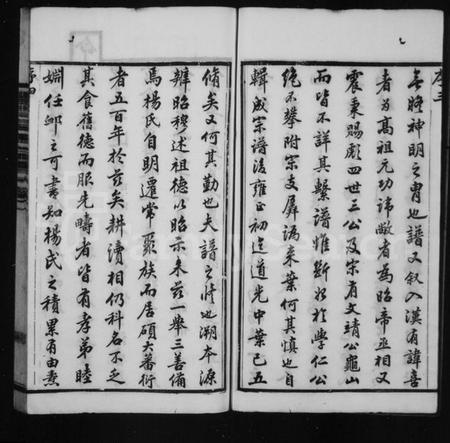 序三
無暇神明之冑也譜又叙入漢有諱喜
者爲高祖元功諱敞者爲昭帝丞相又
震秉賜彪四世三公及宋有文靖公龜山
而皆不詳其繫譜惟斷始於學仁公
絶不攀附宗支屏謁來葉何其慎也自
輯成宗譜後雍正初迄道光中葉已五
脩矣又何其勤也夫譜之脩也溯本源
辨昭穆述祖德以昭示來茲一舉三善備
焉楊氏自明遷常聚族而居碩大蕃衍
者五百年於茲矣耕讀相仍科名不乏
其食舊德而服先疇者皆有孝弟睦
婣任卹之可書知楊氏之積累有由熹
序四